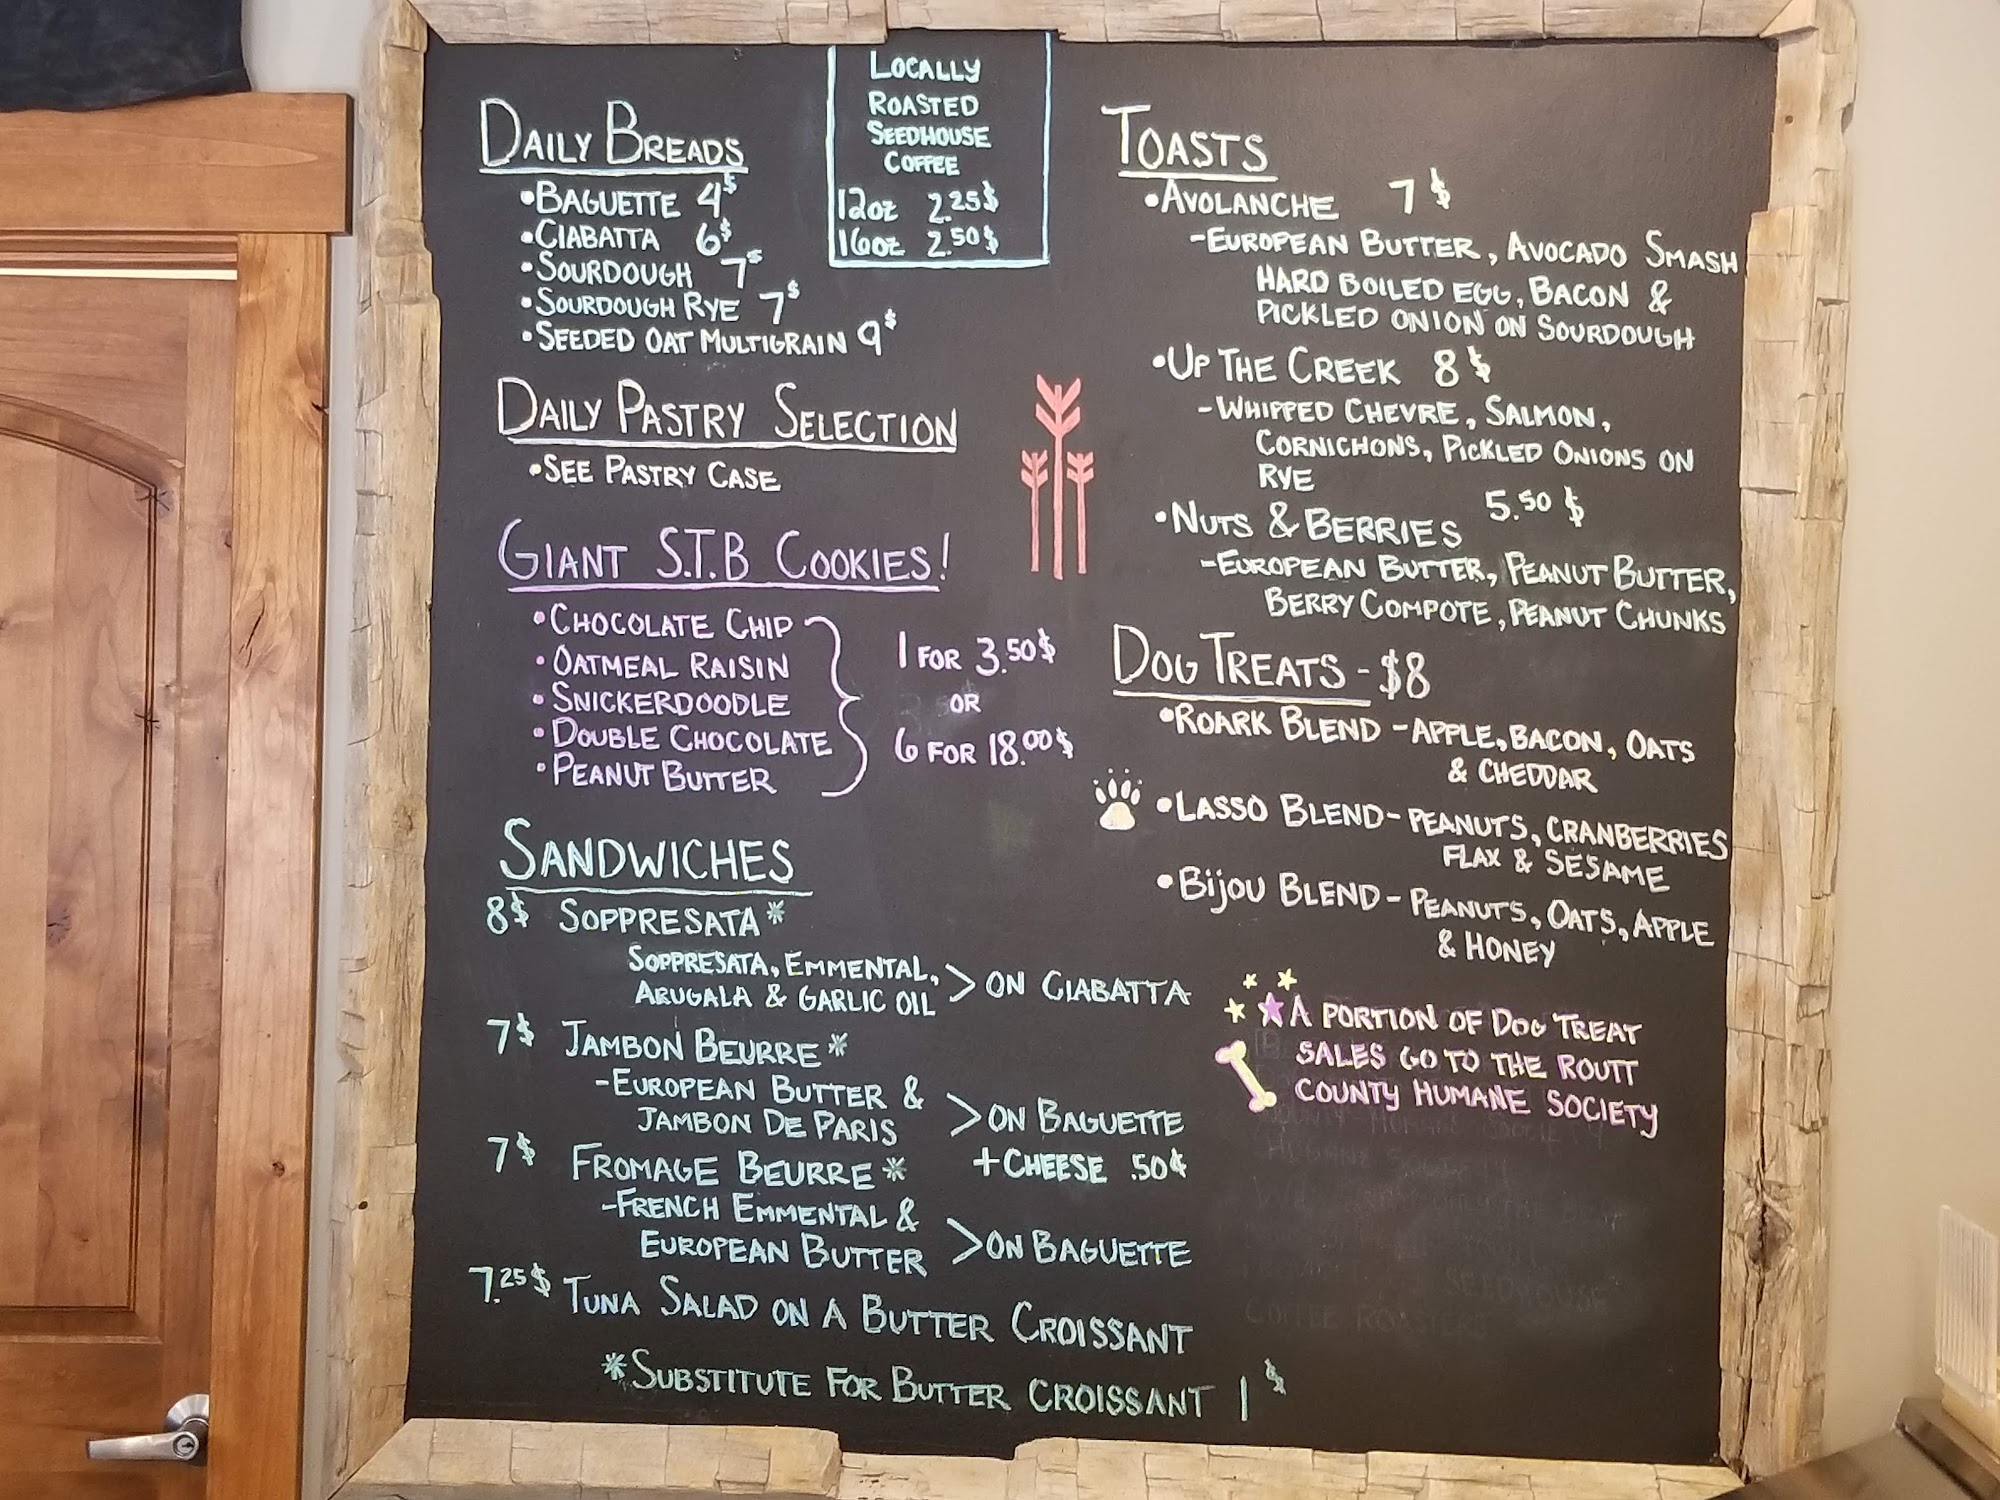 DAILY BREADS
•BAGUETTE 4$
•CIABATTA 6$
•SOURDOUGH 7$
•SOURDOUGH RYE 7$
•SEEDED OAT MULTIGRAIN 9$
DAILY PASTRY SELECTION
•SEE PASTRY CASE
GIANT S.T.B COOKIES!
•CHOCOLATE CHIP
•OATMEAL RAISIN
•SNICKERDOODLE
•DOUBLE CHOCOLATE
•PEANUT BUTTER
1 FOR 3.50$
OR
6 FOR 18.00$
SANDWICHES
8$ SOPPRESATA*
SOPPRESATA, EMMENTAL,
ARUGALA & GARLIC OIL
> ON CIABATTA
7$ JAMBON BEURRE*
-EUROPEAN BUTTER &
JAMBON DE PARIS
>ON BAGUETTE
+CHEESE .50¢
7$ FROMAGE BEURRE*
-FRENCH EMMENTAL &
EUROPEAN BUTTER
>ON BAGUETTE
7.25$ TUNA SALAD ON A BUTTER CROISSANT
*SUBSTITUTE FOR BUTTER CROISSANT 1$
LOCALLY
ROASTED
SEEDHOUSE
COFFEE
12oz 2.25$
16oz 2.50$
TOASTS
•AVOLANCHE 7$
-EUROPEAN BUTTER, AVOCADO SMASH
HARD BOILED EGG, BACON &
PICKLED ONION ON SOURDOUGH
•UP THE CREEK 8$
-WHIPPED CHEVRE, SALMON,
CORNICHONS, PICKLED ONIONS ON
RYE
•NUTS & BERRIES 5.50$
-EUROPEAN BUTTER, PEANUT BUTTER,
BERRY COMPOTE, PEANUT CHUNKS
DOG TREATS - $8
•ROARK BLEND - APPLE, BACON, OATS
& CHEDDAR
•LASSO BLEND - PEANUTS, CRANBERRIES
FLAX & SESAME
•BIJOU BLEND - PEANUTS, OATS, APPLE
& HONEY
A PORTION OF DOG TREAT
SALES GO TO THE ROUTT
COUNTY HUMANE SOCIETY
SEEDHOUSE
COFFEE ROASTERS